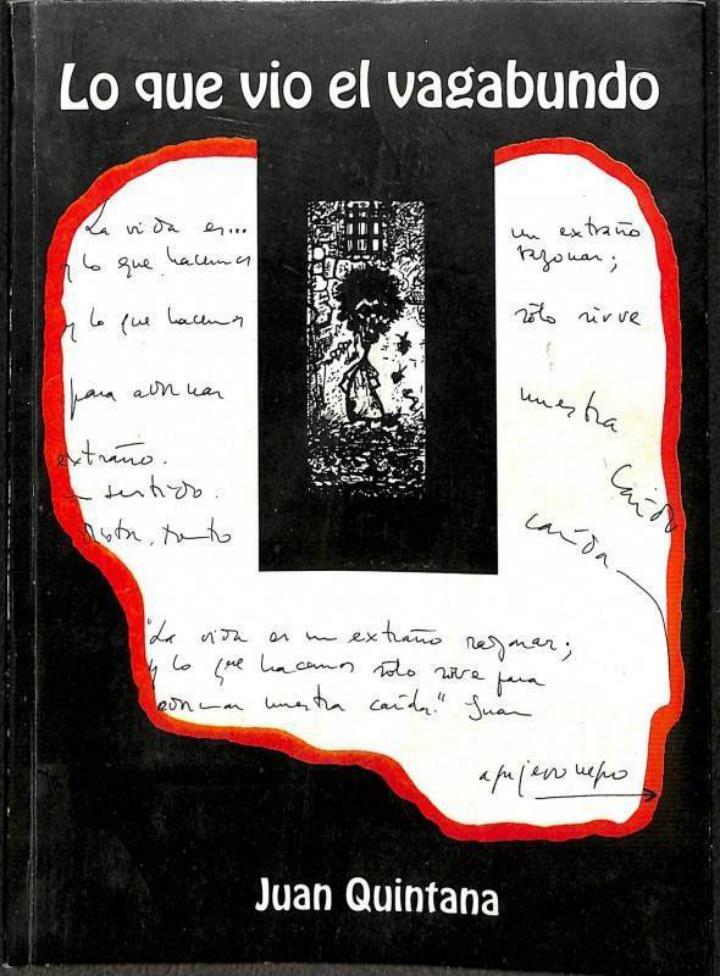 Lo que vio el vagabundo
La vida es... un extraño
y lo que hacemos razonar;
y lo que hacemos sólo sirve
para adornar nuestra
extraño. caída
sentido. caída
tanto
"La vida es un extraño razonar;
y lo que hacemos sólo sirve para
adornar nuestra caída." Juan
Juan Quintana